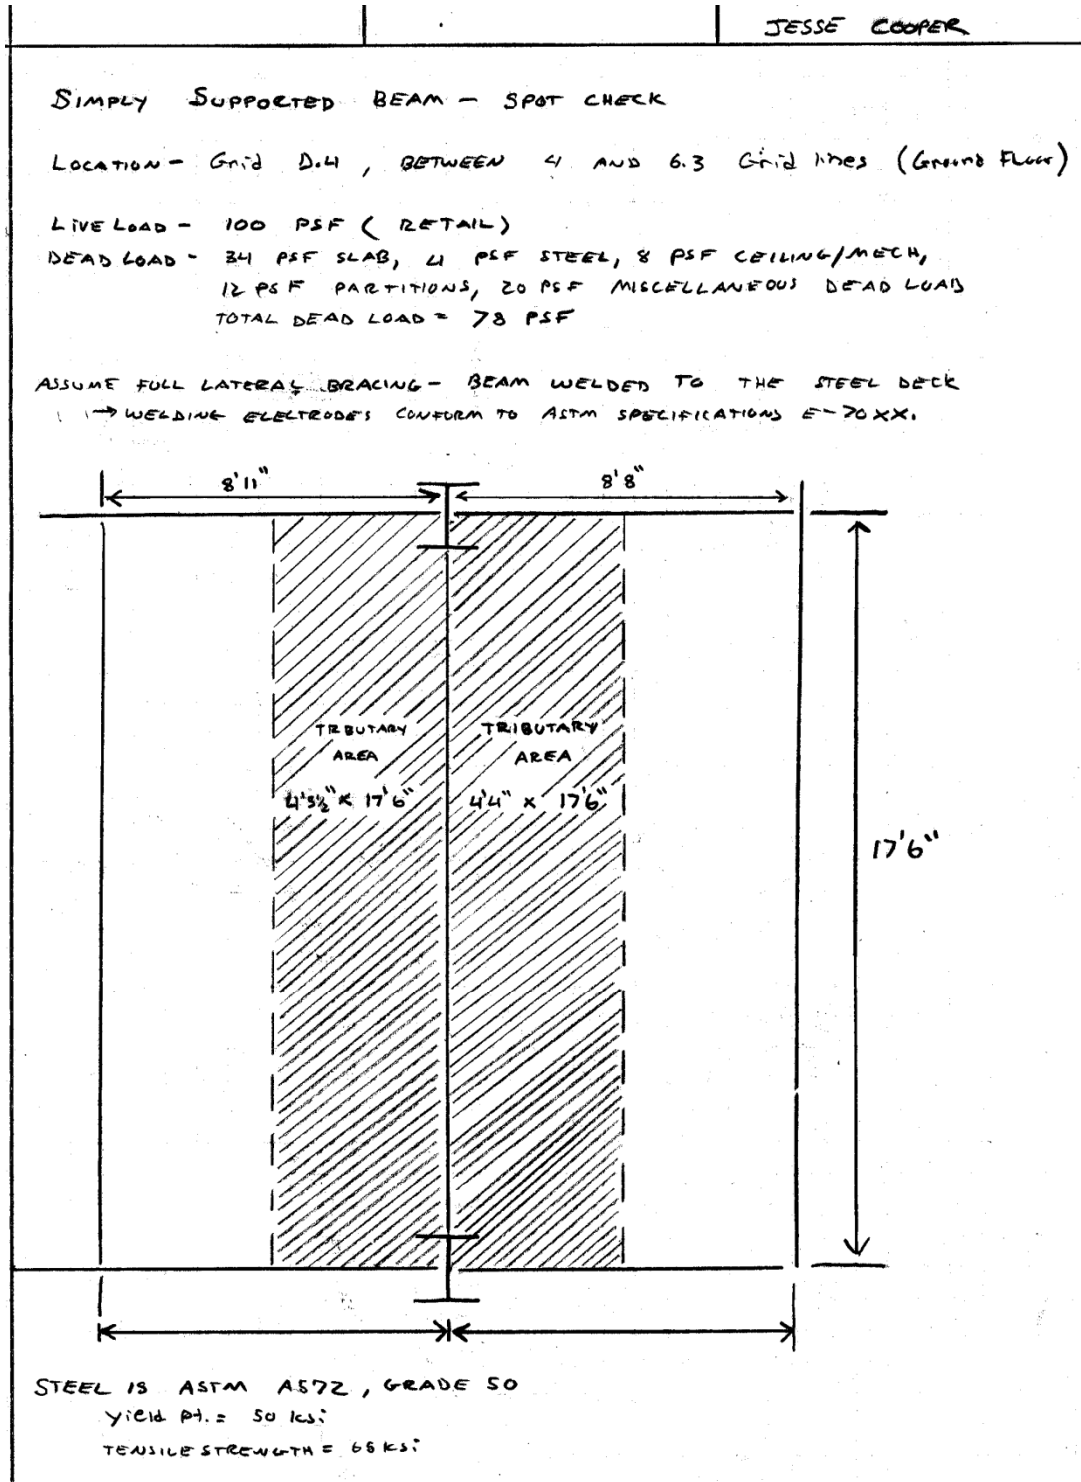 JESSE COOPER
SIMPLY SUPPORTED BEAM - SPOT CHECK
LOCATION - Grid D.4, BETWEEN 4 AND 6.3 Grid lines (Ground Floor)
LIVE LOAD - 100 PSF (RETAIL)
DEAD LOAD - 34 PSF SLAB, 4 PSF STEEL, 8 PSF CEILING/MECH,
12 PSF PARTITIONS, 20 PSF MISCELLANEOUS DEAD LOAD
TOTAL DEAD LOAD = 78 PSF
ASSUME FULL LATERAL BRACING - BEAM WELDED TO THE STEEL DECK
→ WELDING ELECTRODES CONFORM TO ASTM SPECIFICATIONS E-70XX.
8'11" 8'8"
TRBUTARY
AREA
4'5½" x 17'6"
TRIBUTARY
AREA
4'4" x 17'6"
17'6"
STEEL IS ASTM A572, GRADE 50
Yield pt. = 50 ksi
TENSILE STRENGTH = 65 ksi